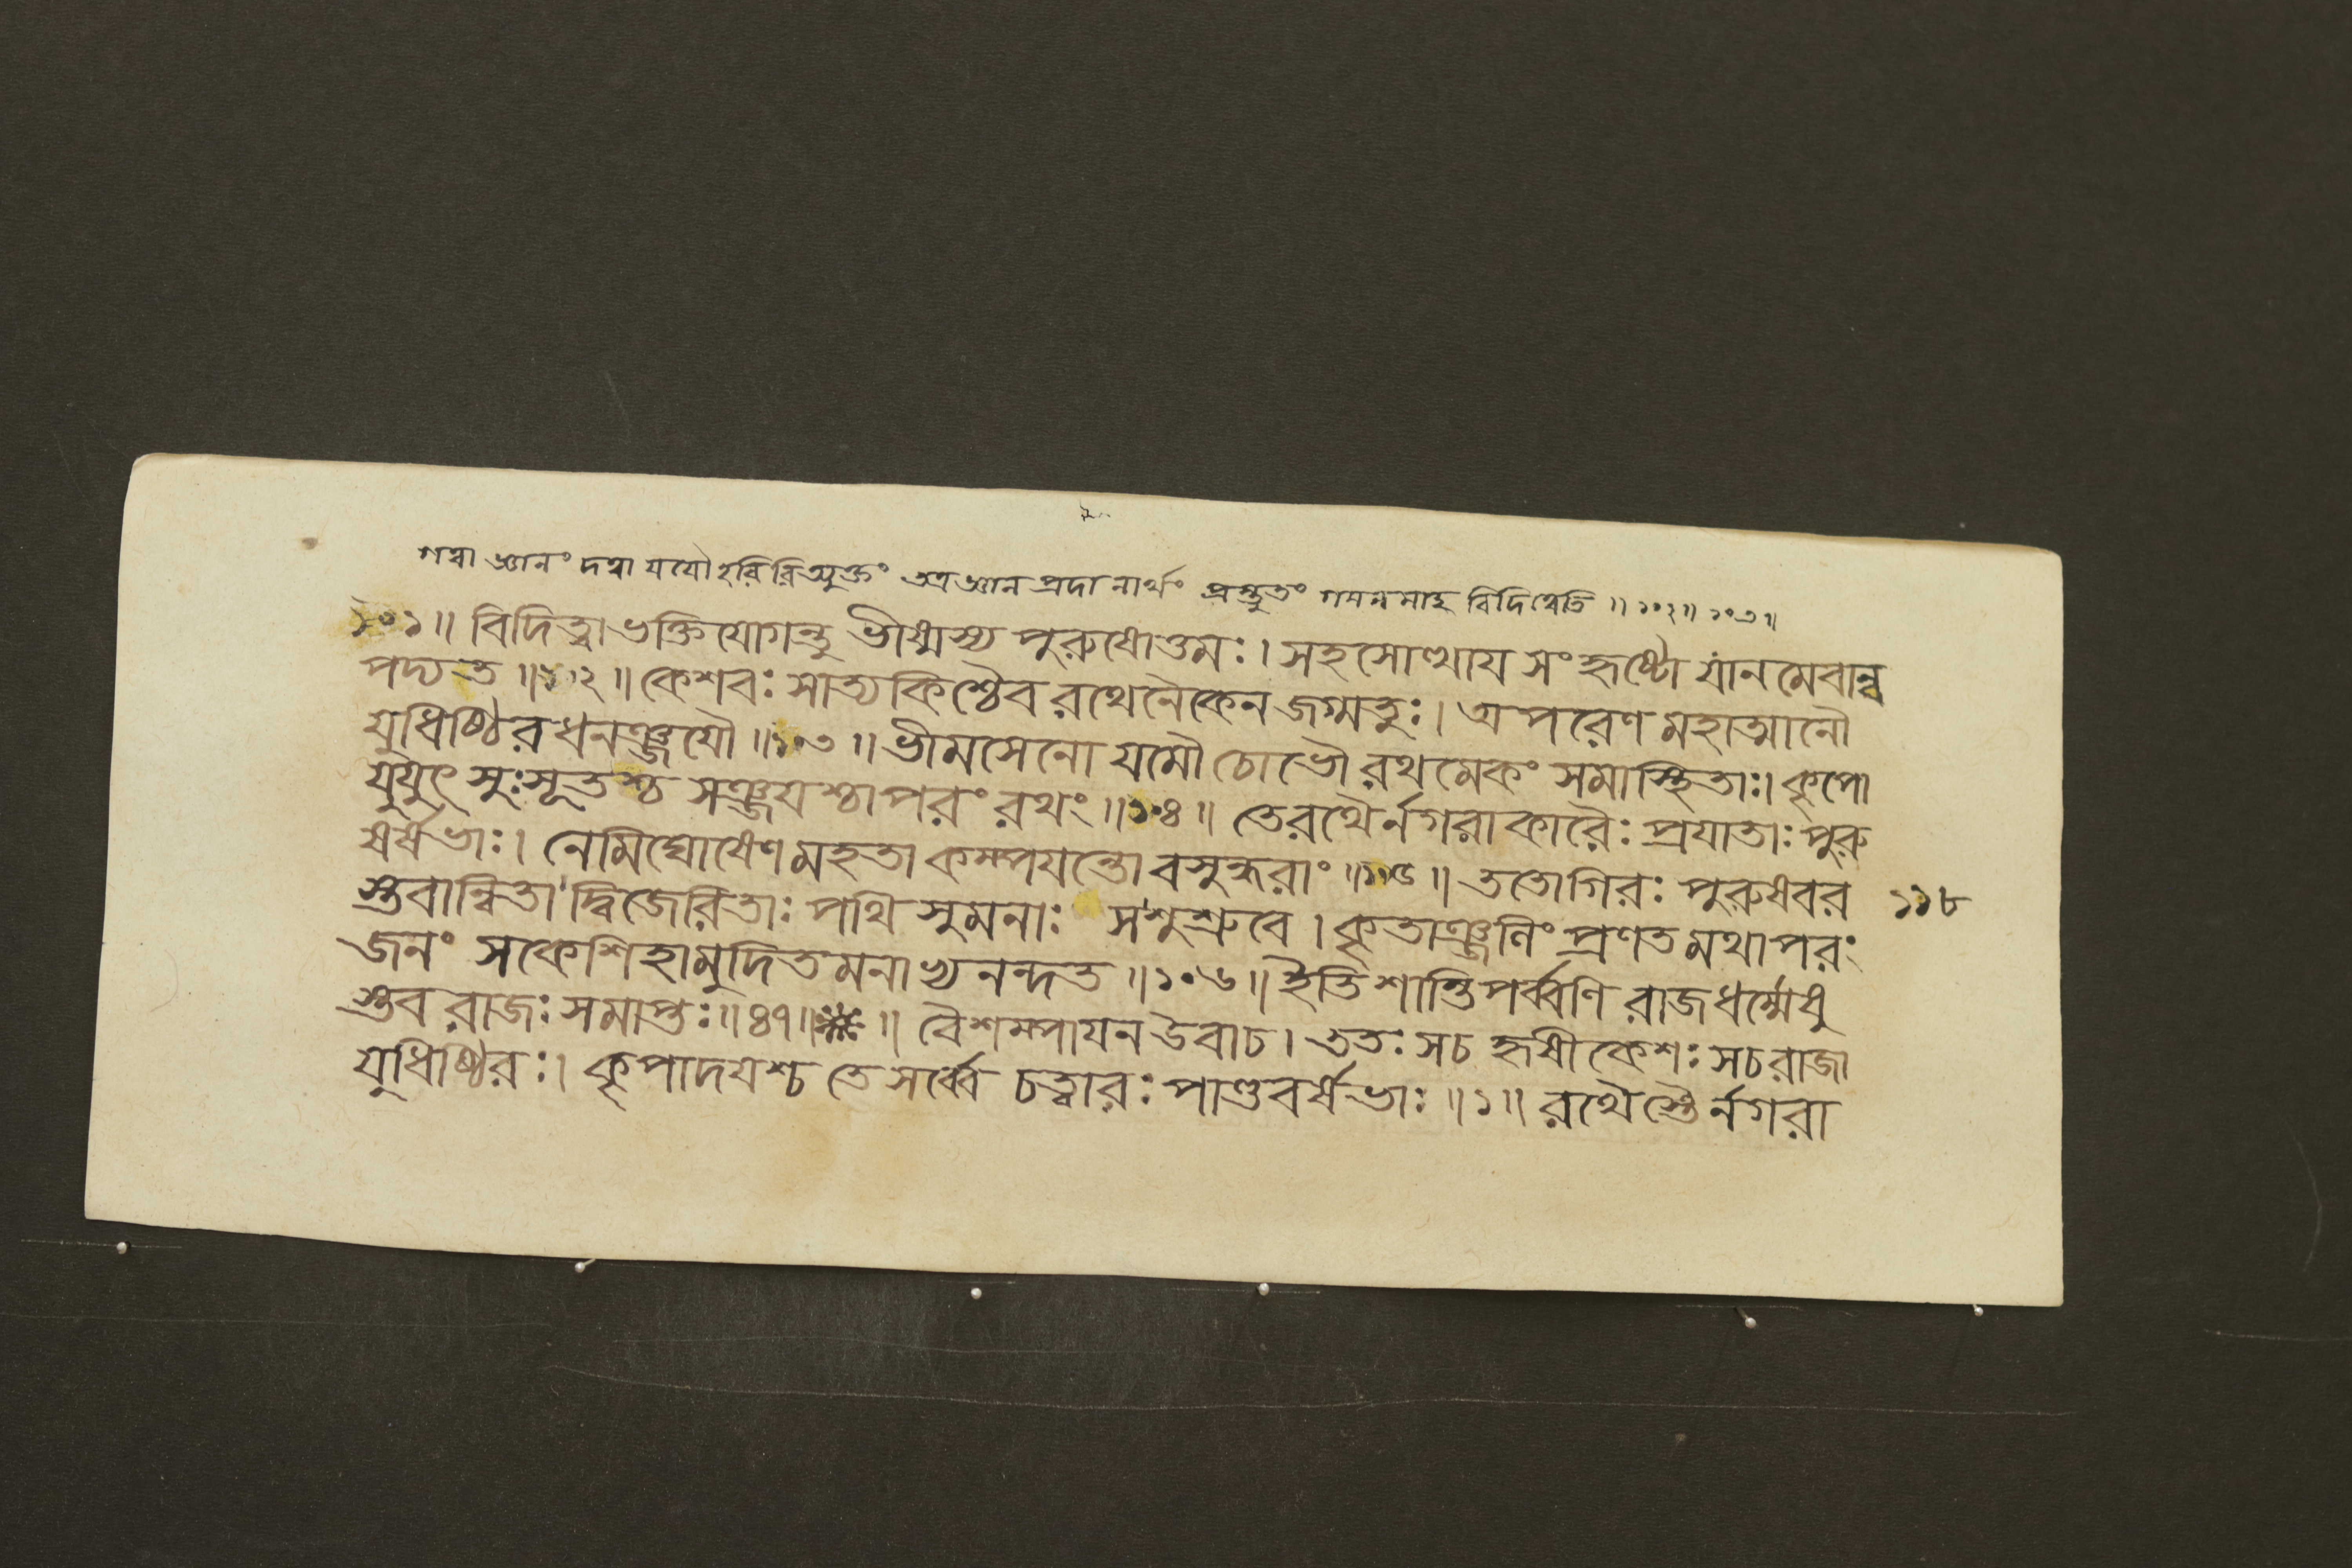 গত্বা জ্ঞানং দত্বা যযৌ হরিরিত্যুক্তং তত্র জ্ঞান প্রদানার্থং প্রস্তুতং গমনমাহ বিদিত্বেতি ॥ ১০২॥ ১০৩॥
১০১॥ বিদিত্বা ভক্তিযোগন্তু ভীষ্মস্য পুরুষোত্তমঃ। সহসোত্থায সংহৃষ্টো যানমেবান্ব
পদ্যত ॥১০২॥ কেশবঃ সাত্যকিশ্চৈব রথেনৈকেন জগ্মতুঃ। অপরেণ মহাত্মানৌ
যুধিষ্ঠিরধনঞ্জযৌ ॥১০৩॥ ভীমসেনো যমৌ চোভৌ রথমেকং সমাস্থিতাঃ। কৃপো
যুযুৎসুঃ সূতশ্চ সঞ্জযশ্চাপরং রথং ॥১০৪॥ তে রথৈর্নগরাকারৈঃ প্রযাতাঃ পুরু
ষর্ষভাঃ। নেমিঘোষেণ মহতা কম্পযন্তো বসুন্ধরাং ॥১০৫॥ ততো গিরঃ পুরুষবর
স্তবান্বিতা দ্বিজেরিতাঃ পথি সুমনাঃ স শুশ্রুবে। কৃতাঞ্জলিং প্রণতমথাপরং
১১৮
জনং স কেশিহা মুদিতমনাভ্যনন্দত ॥১০৬॥ ইতি শান্তিপর্ব্বণি রাজধর্ম্মেষু
স্তবরাজঃ সমাপ্তঃ॥ ৪৭॥ ॥ বৈশম্পাযন উবাচ। ততঃ স চ হৃষীকেশঃ স চ রাজা
যুধিষ্ঠিরঃ। কৃপাদযশ্চ তে সর্ব্বে চত্বারঃ পাণ্ডবর্ষভাঃ ॥১॥ রথৈস্তৈর্নগরা